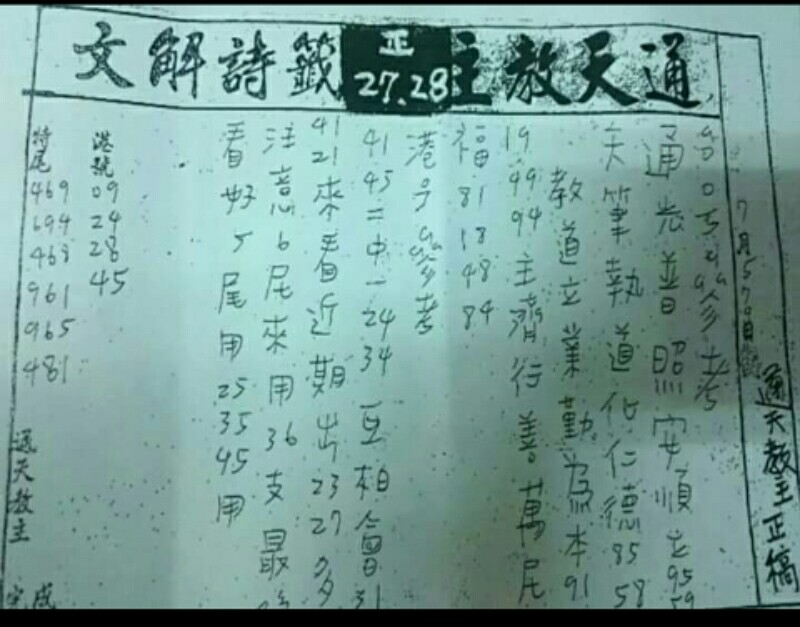 通天教主 正 27.28 籤詩解文
通天教主正稿
参考
通光普照安順 95 59
天筆執道化仁德 85 58
教道立業勤為本 91
19 49 94 主濟行善萬民
福 81 18 48 84
港号参考
41 45 二中一 24 34 互相會 31
41 21 來看近期出 23 27 多
注意 6 尾來用 36 支最
看好 5 尾用 25 35 45 用
港號 09 24 28 45
特尾 469 694 468 961 965 481
通天教主 完成